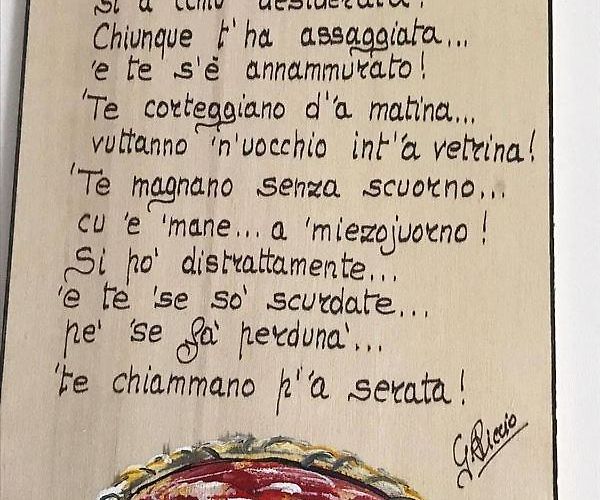 Si 'a cchiù desiderata!
Chiunque t'ha assaggiata...
'e te s'è annammurato!
'Te corteggiano d''a matina...
vuttanno 'n'uocchio int''a vetrina!
'Te magnano senza scuorno...
cu 'e 'mane... a 'miezojuorno!
Si po' distrattamente...
'e te 'se so' scurdate...
pe' 'se fa' perduna'...
'te chiammano p''a serata!
G. Riccio